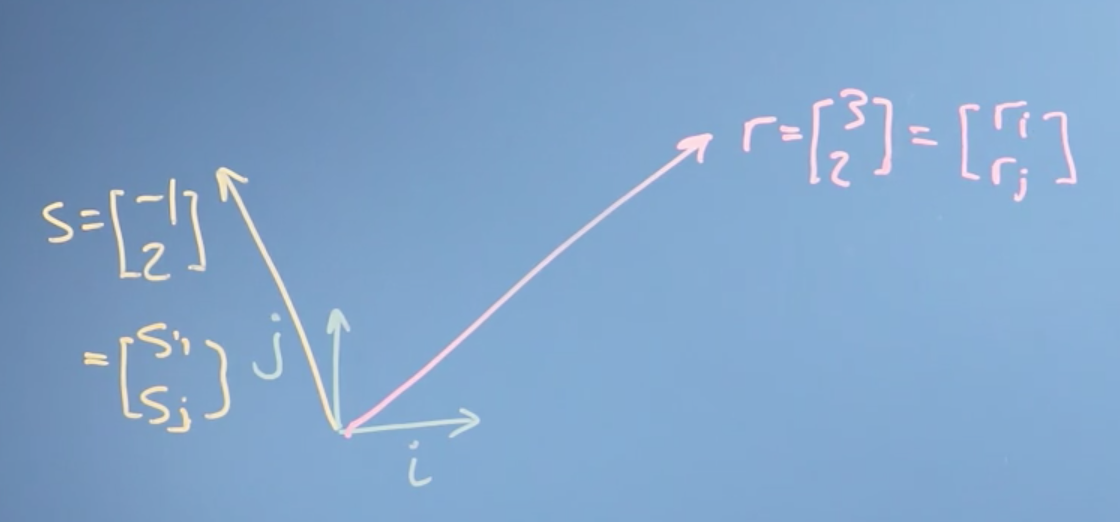 r = [3 2] = [rᵢ rⱼ]
s = [-1 2]
= [sᵢ sⱼ]
j
i